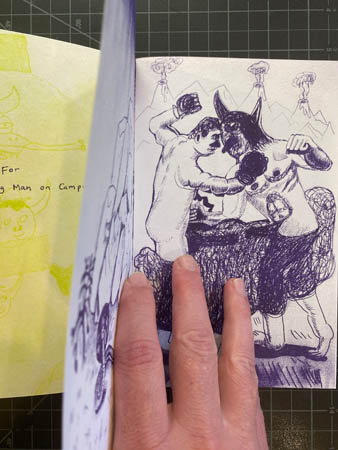 For
Man on Camp